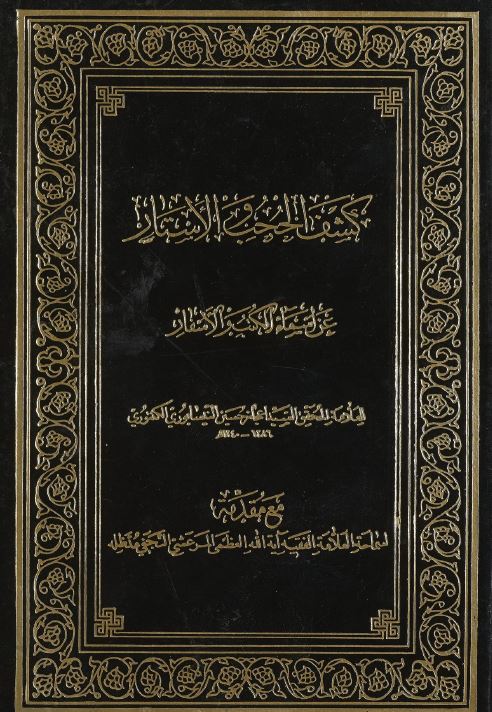 كشف الحجب و الأستار
عن أسماء الكتب و الأسفار
للعلامة المحقق السيد إعجاز حسين النيسابوري الكنتوري
١٢٤٠ - ١٢٨٦
مع مقدمة
لسماحة العلامة الفقيه آية الله العظمى المرعشي النجفي مد ظله